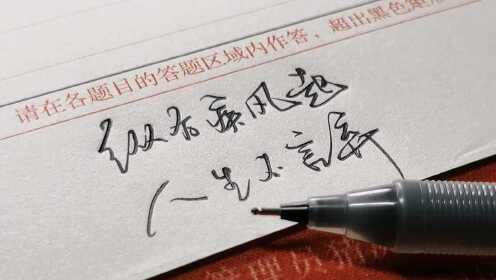 请在各题目的答题区域内作答，超出黑色矩形
纵有疾风起
人生不言弃